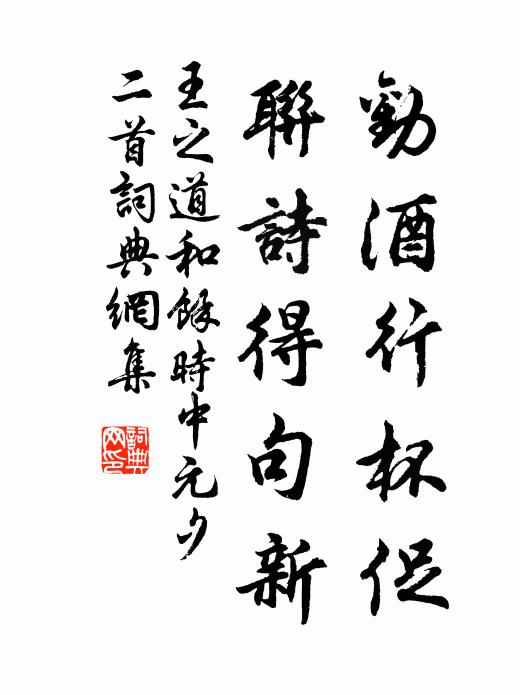 勸酒行杯促
聯詩得句新
王之道和餘時中元夕
二首詞典網集
詞典
网印